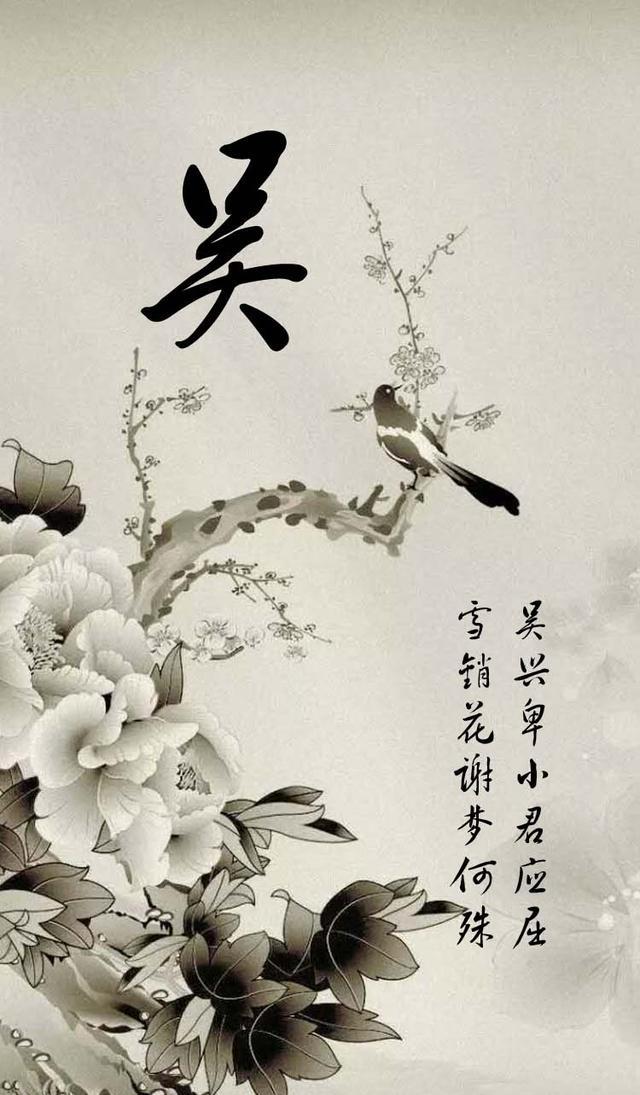 吴
吴兴卑小君应屈
雪销花谢梦何殊